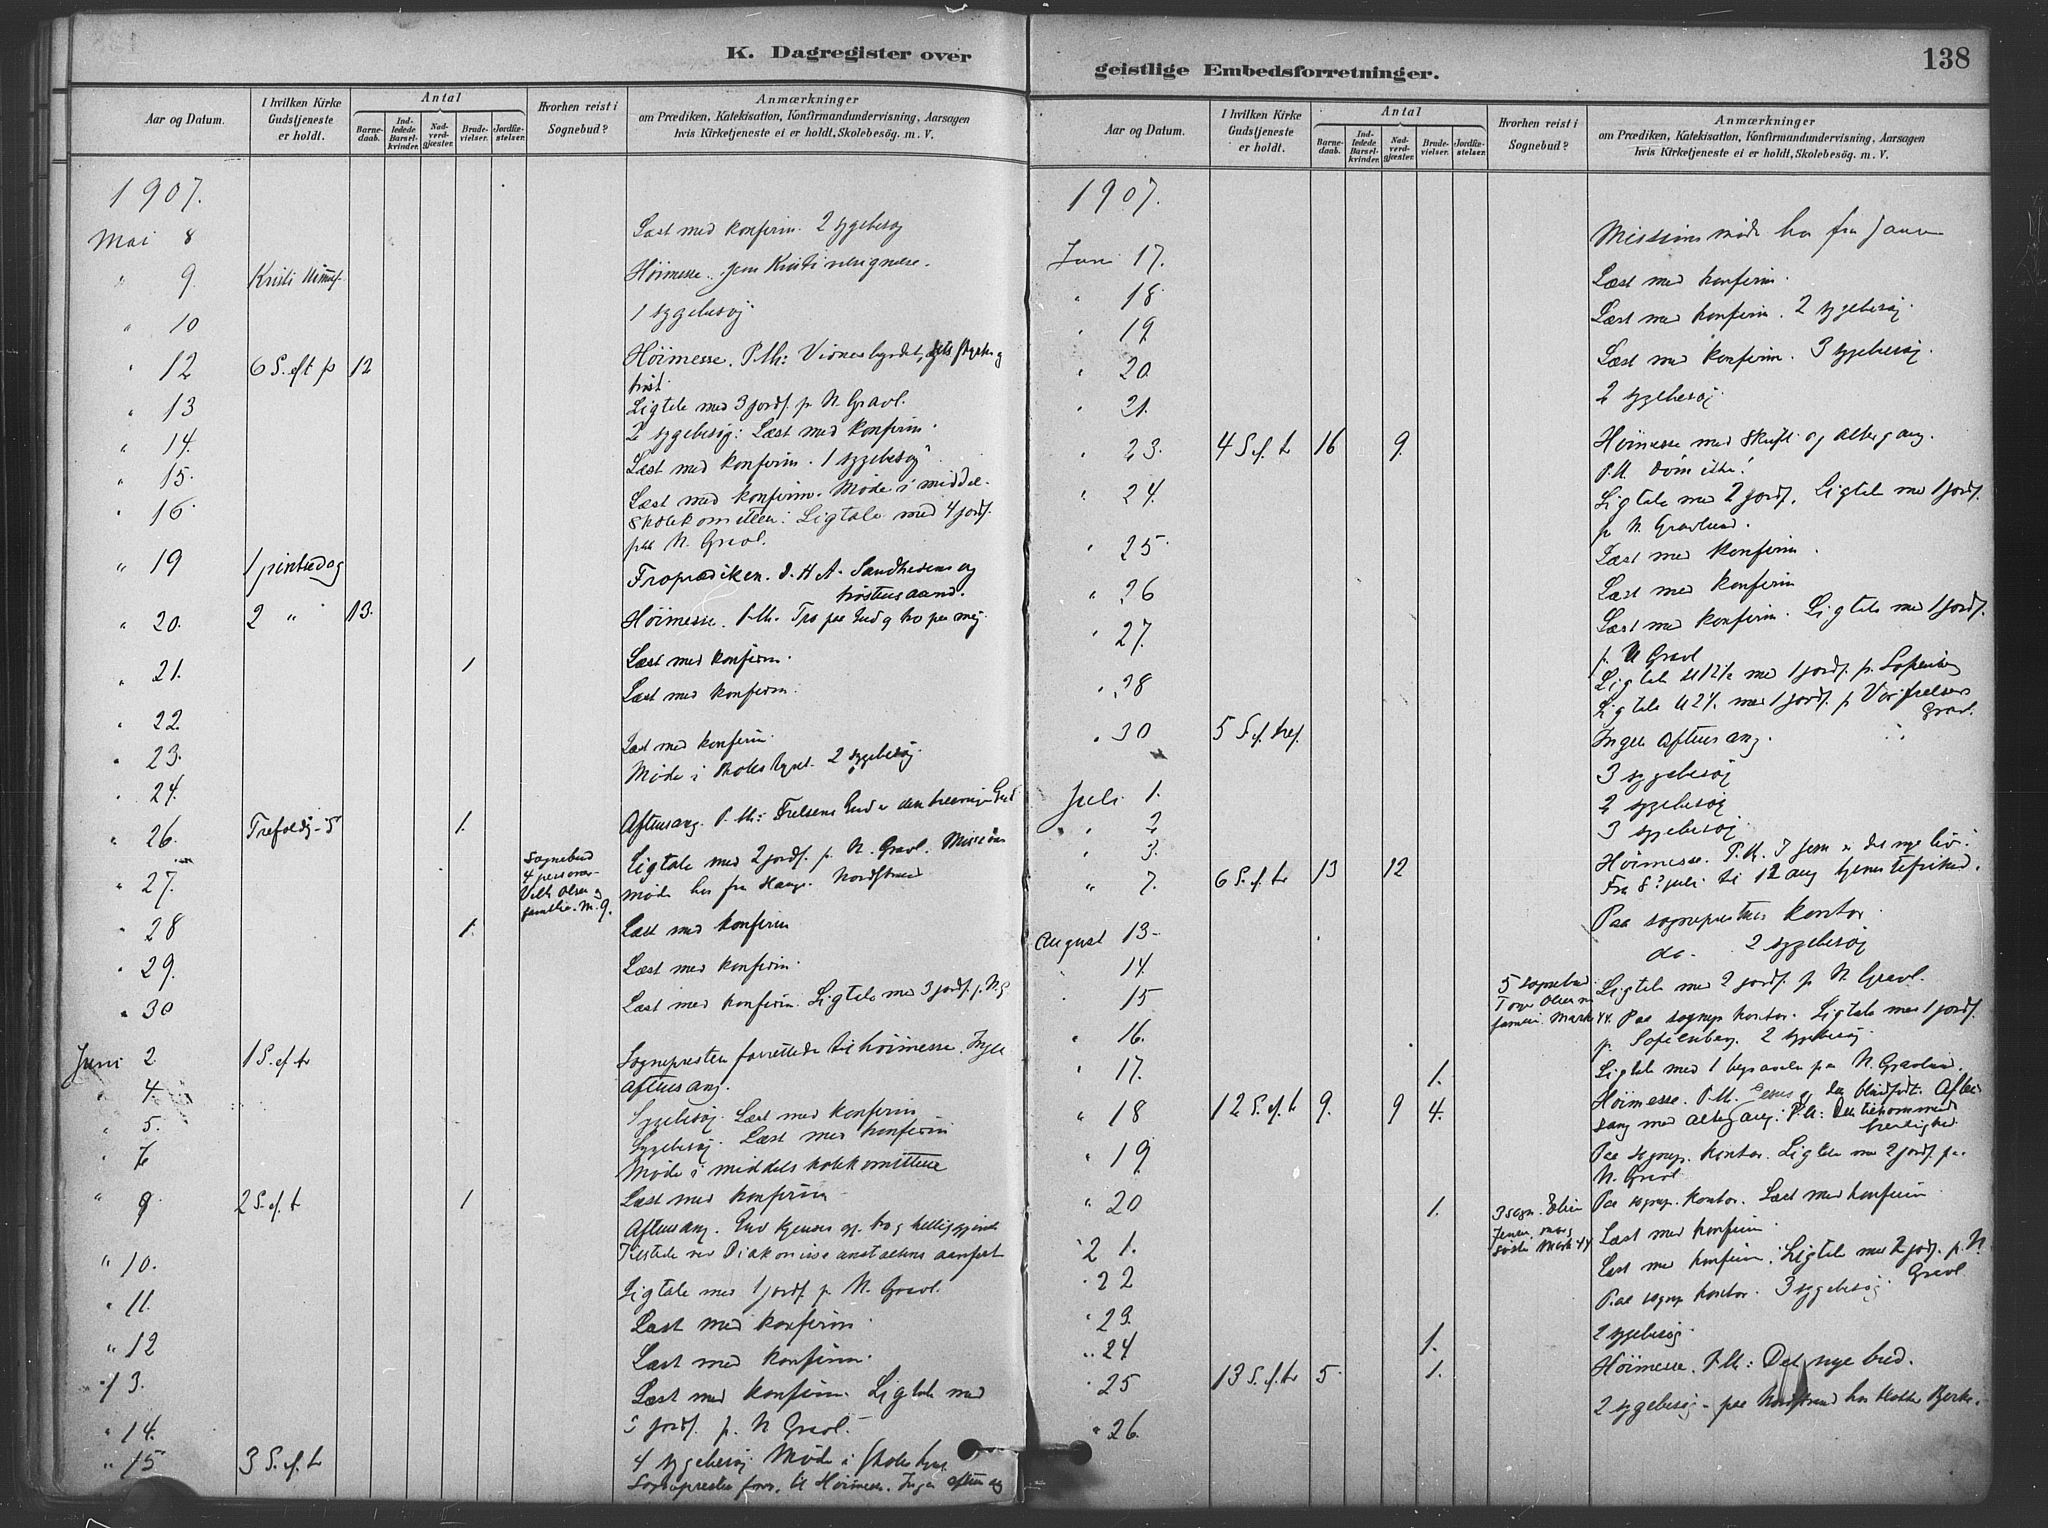 K. Dagregister over
Aar og Datum.
I hvilken Kirke Gudstjeneste er holdt.
Antal
Barnedaab.
Indledede Barselkvinder.
Nadverdgjæster.
Brudevielser.
Jordfæstelser.
Hvorhen reist i Sognebud?
Anmærkninger
om Prædiken, Katekisation, Konfirmandundervisning, Aarsagen
hvis Kirketjeneste ei er holdt, Skolebesög. m. V.
1907.
Mai 8 Læst med konfirm. 2 sygebesøg
" 9 Kristi Høimesse.
" 10 1 sygebesøg
" 12 6 S. eft p 12 Høimesse. P.M: Vidnesbyrdet, dets styrke og
trøst.
" 13 Ligtale med 3 jordf. p N. Gravl.
" 14. 2 sygebesøg: Læst med konfirm.
" 15. Læst med konfirm. 1 sygebesøg
" 16. Læst med konfirm. Møde i middel-
skolekomiteen. Ligtale med 4 jordf.
paa N. Gravl.
" 19 1 pintsedag Froprædiken. S.H.A. Sandhedens og
trøstens aand.
" 20. 2 " 13. Høimesse. P.M. Tro paa Gud og tro paa mig.
" 21. 1 Læst med konfirm.
" 22. Læst med konfirm.
" 23. Læst med konfirm.
" 24. Møde i skolestyret. 2 sygebesøg.
" 26. Trefoldig. S 1. Aftensang. P.M: Frelsens Gud er den treenige Gud
" 27. Sognebud 4 personer Vilh Olsen og familie. M. 9. Ligtale med 2 jordf. p. N. Gravl. Missions
møde hos fra Hauge. Nordstrand
" 28 1. Læst med konfirm
" 29. Læst med konfirm.
" 30 Læst med konfirm. Ligtale med 3 jordf. p. N.G.
Juni 2 1 S. ef. tr Sognepresten forrettede til høimesse. Ingen
aftensang.
" 4. Sygebesøg. Læst med konfirm
" 5. Sygebesøg. Læst med konfirm
" 7 Møde i middelskolekomiteen
" 9 2 S. ef. t 1 Læst med konfirm
Aftensang.
" 10. Tilstede ved Diakonisseanstaltens aarsfest
" 11. Ligtale med 1 jordf. p. N. Gravl.
" 12 Læst med konfirm.
" 13. Læst med konfirm.
" 14. Læst med konfirm. Ligtale med
5 jordf. p. N Gravl.
" 15 3 S. ef. tr 4 sygebesøg Møde i skolestyret
Sognepresten forr. til Høimesse. Ingen aftensang
geistlige Embedsforretninger.
138
Aar og Datum.
I hvilken Kirke Gudstjeneste er holdt.
Antal
Barnedaab.
Indledede Barselkvinder.
Nadverdgjæster.
Brudevielser.
Jordfæstelser.
Hvorhen reist i Sognebud?
Anmærkninger
om Prædiken, Katekisation, Konfirmandundervisning, Aarsagen
hvis Kirketjeneste ei er holdt, Skolebesög. m. V.
1907.
Missionsmøde hos fru
Juni 17. Læst med konfirm.
" 18 Læst med konfirm. 2 sygebesøg.
" 19. Læst med konfirm. 3 sygebesøg.
" 20. 2 sygebesøg.
" 21.
" 23. 4 S. ef. tr 16 9. Høimesse med skrift. og altergang.
P.M. Døm ikke!
" 24. Ligtale med 2 jordf. Ligtale med 1 jordf.
p N. Gravlund.
" 25. Læst med konfirm.
" 26 Læst med konfirm
" 27. Læst med konfirm. Ligtale med 1 jordf.
p. N Gravl
" 28 Ligtale kl 12½ med 1 jordf. p. Sofienberg
Ligtale kl 2½ med 1 jordf. p Vor frelsers
Gravl.
" 30 5 S. ef. tref. Ingen aftensang.
3 sygebesøg
Juli 1. 2 sygebesøg
" 2 3 sygebesøg.
" 3.
" 7. 6 S. ef. tr 13 12 Høimesse. P.M. I Jesu er det nye liv.
Fra 8de juli til 12 aug tjenestefrihed.
August 13. Paa sogneprestens kontor.
" 14. do. 2 sygebesøg
" 15 5 sognebud. Ligtale med 2 jordf p N. Gravl.
" 16. Paa sognep kontor. Ligtale med 1 jordf.
p. Sofienberg. 2 sygebesøg
" 17. 1. Ligtale med 1 begravelse paa N. Gravlund.
" 18 12 S. ef. tr 9. 9 4. Høimesse. P.M. Jesus og den blindfødte. Aften-
sang med altergang. P.M: Den tilkommende
herlighed.
" 19. Paa sognep. kontor. Ligtale med 2 jordf. paa
N. Gravl
" 20 1. 3 sogn. Paa sognep. kontor. Læst med konfirm
" 21. Læst med konfirm.
" 22 Læst med konfirm. Ligtale med 2 jordf. p. N.
Gravl
" 23. Paa sognep kontor. 3 sygebesøg
" 24 1. 2 sygebesøg.
" 25 13 S. ef. tr 5. 1. Høimesse. P.M: Det nye bud.
" 26. 2 sygebesøg - paa Nordstrand